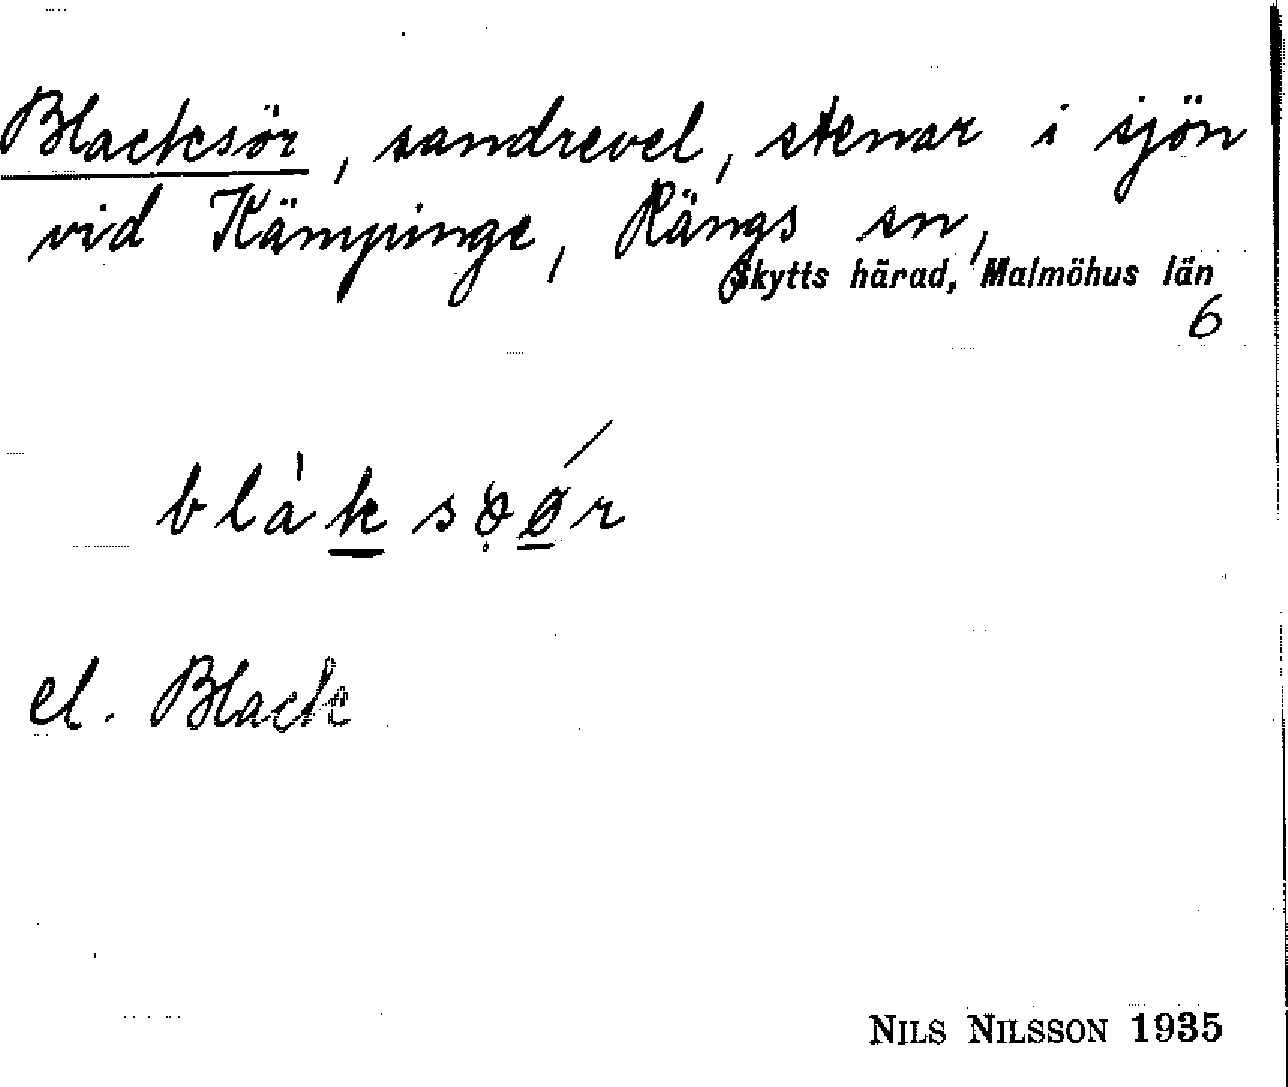 Blacksör, sandrevel, stenar i sjön
vid Kämpinge, Rängs sn,
Skytts härad, Malmöhus län
6
el. Black
NILS NILSSON 1935